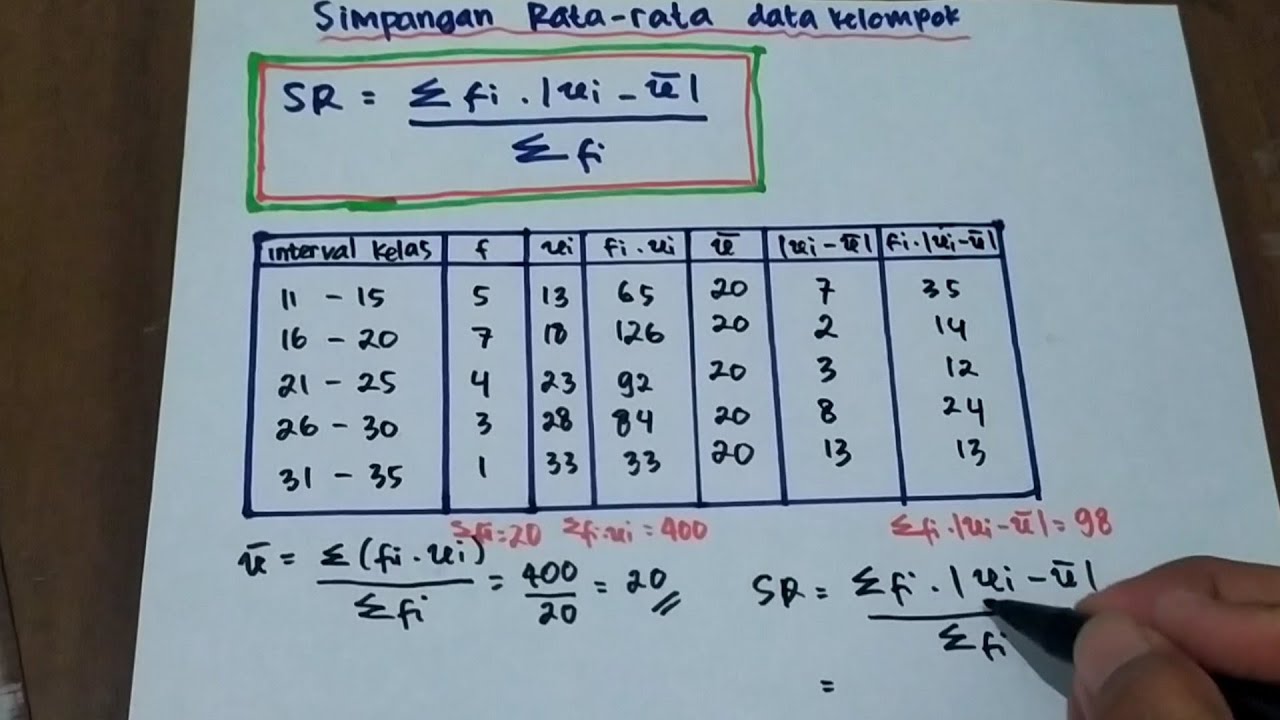 Simpangan Rata-rata data kelompok
SR = Σ fi . |xi - x̄|
Σ fi
interval kelas f xi fi . xi x̄ |xi - x̄| fi . |xi - x̄|
11 - 15 5 13 65 20 7 35
16 - 20 7 18 126 20 2 14
21 - 25 4 23 92 20 3 12
26 - 30 3 28 84 20 8 24
31 - 35 1 33 33 20 13 13
Σfi = 20 Σfi.xi = 400 Σfi.|xi - x̄| = 98
x̄ = Σ (fi . xi) = 400 = 20
Σ fi 20
SR = Σ fi . |xi - x̄|
Σ fi
=